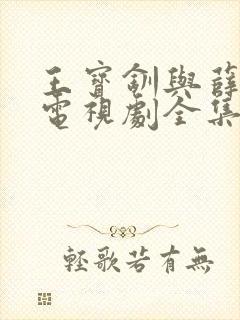 王寶釧與薛
電視劇全集
輕歌若有無